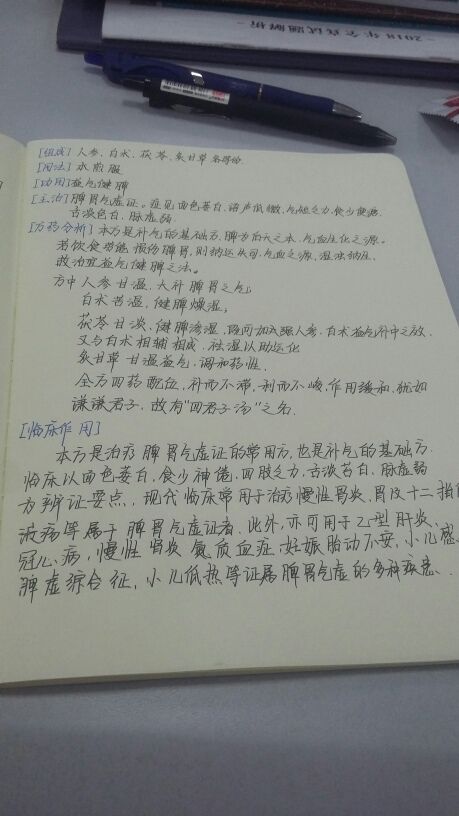 -2018年全真试题解析-
[组成] 人参、白术、茯苓、炙甘草各等份
[用法] 水煎服
[功用] 益气健脾
[主治] 脾胃气虚证。症见面色萎白、语声低微、气短乏力、食少便溏、
舌淡苔白、脉虚弱
[方药分析] 本方是补气的基础方，脾为后天之本、气血生化之源。
若饮食劳倦，损伤脾胃，则纳运失司，气血乏源、湿浊内生、
故治宜益气健脾之法。
方中人参甘温、大补脾胃之气；
白术苦温，健脾燥湿；
茯苓甘淡、健脾渗湿，既可加强人参、白术益气补中之效、
又与白术相辅相成、祛湿以助运化
炙甘草甘温益气，调和药性、
全方四药配位，补而不滞，利而不峻，作用缓和，犹如
谦谦君子，故有“四君子汤”之名.
[临床作用]
本方是治疗脾胃气虚证的常用方，也是补气的基础方.
临床以面色萎白，食少神倦，四肢乏力，舌淡苔白、脉虚弱
为辨证要点，现代临床常用于治疗慢性胃炎、胃及十二指肠
溃疡等属于脾胃气虚证者，此外，亦可用于乙型肝炎、
冠心病，慢性肾炎 氮质血症，妊娠胎动不安，小儿感
脾虚综合征，小儿低热等证属脾胃气虚的多种疾患、